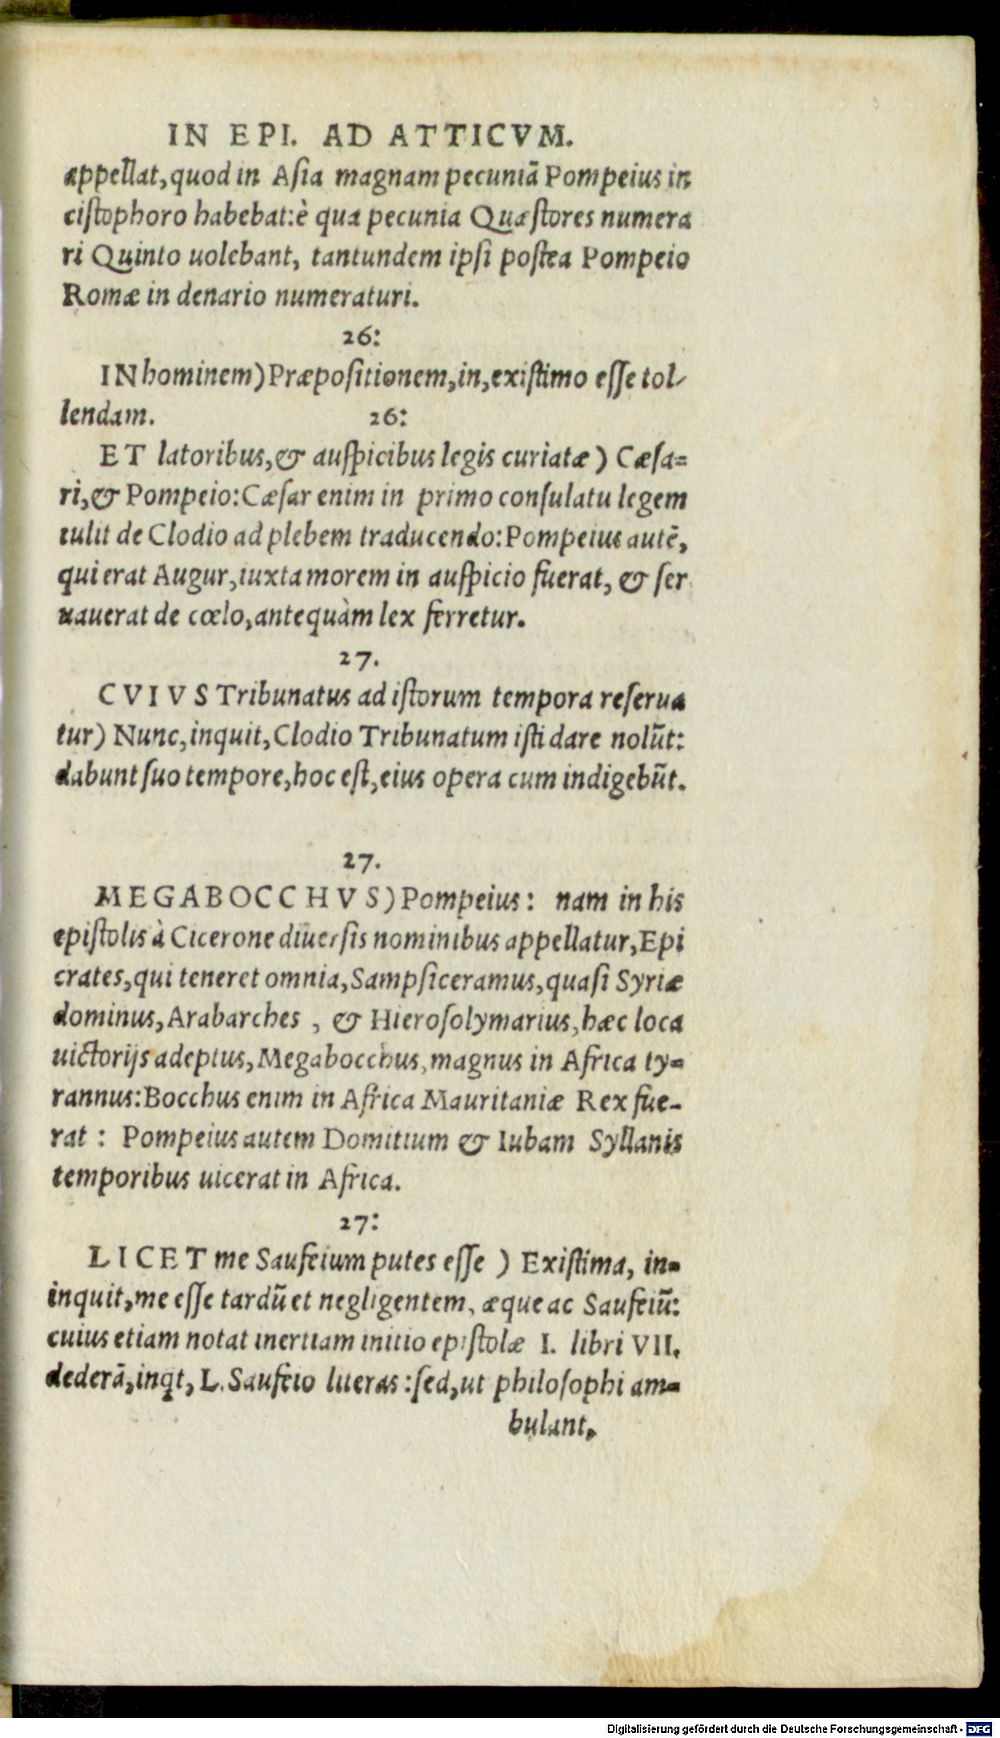 IN EPI. AD ATTICVM.
appellat, quod in Asia magnam pecuniã Pompeius in
cistophoro habebat: è qua pecunia Quæstores numera
ri Quinto uolebant, tantundem ipsi postea Pompeio
Romæ in denario numeraturi.
26:
IN hominem) Præpositionem, in, existimo esse tol-
lendam. 26:
ET latoribus, & auspicibus legis curiatæ) Cæsa=
ri, & Pompeio: Cæsar enim in primo consulatu legem
tulit de Clodio ad plebem traducendo: Pompeius autẽ,
qui erat Augur, iuxta morem in auspicio fuerat, & ser
uauerat de cœlo, antequàm lex ferretur.
27.
CVIVS Tribunatus ad istorum tempora reserua
tur) Nunc, inquit, Clodio Tribunatum isti dare nolũt:
dabunt suo tempore, hoc est, eius opera cum indigebũt.
27.
MEGABOCCHVS) Pompeius: nam in his
epistolis à Cicerone diuersis nominibus appellatur, Epi
crates, qui teneret omnia, Sampsiceramus, quasi Syriæ
dominus, Arabarches, & Hierosolymarius, hæc loca
uictorijs adeptus, Megabocchus, magnus in Africa ty=
rannus: Bocchus enim in Africa Mauritaniæ Rex fue-
rat: Pompeius autem Domitium & Iubam Syllanis
temporibus uicerat in Africa.
27:
LICET me Saufeium putes esse) Existima, in=
inquit, me esse tardũ et negligentem, æque ac Saufeiũ:
cuius etiam notat inertiam initio epistolæ I. libri VII.
dederã, inqt, L. Saufeio literas: sed, ut philosophi am=
bulant,
Digitalisierung gefördert durch die Deutsche Forschungsgemeinschaft - DFG